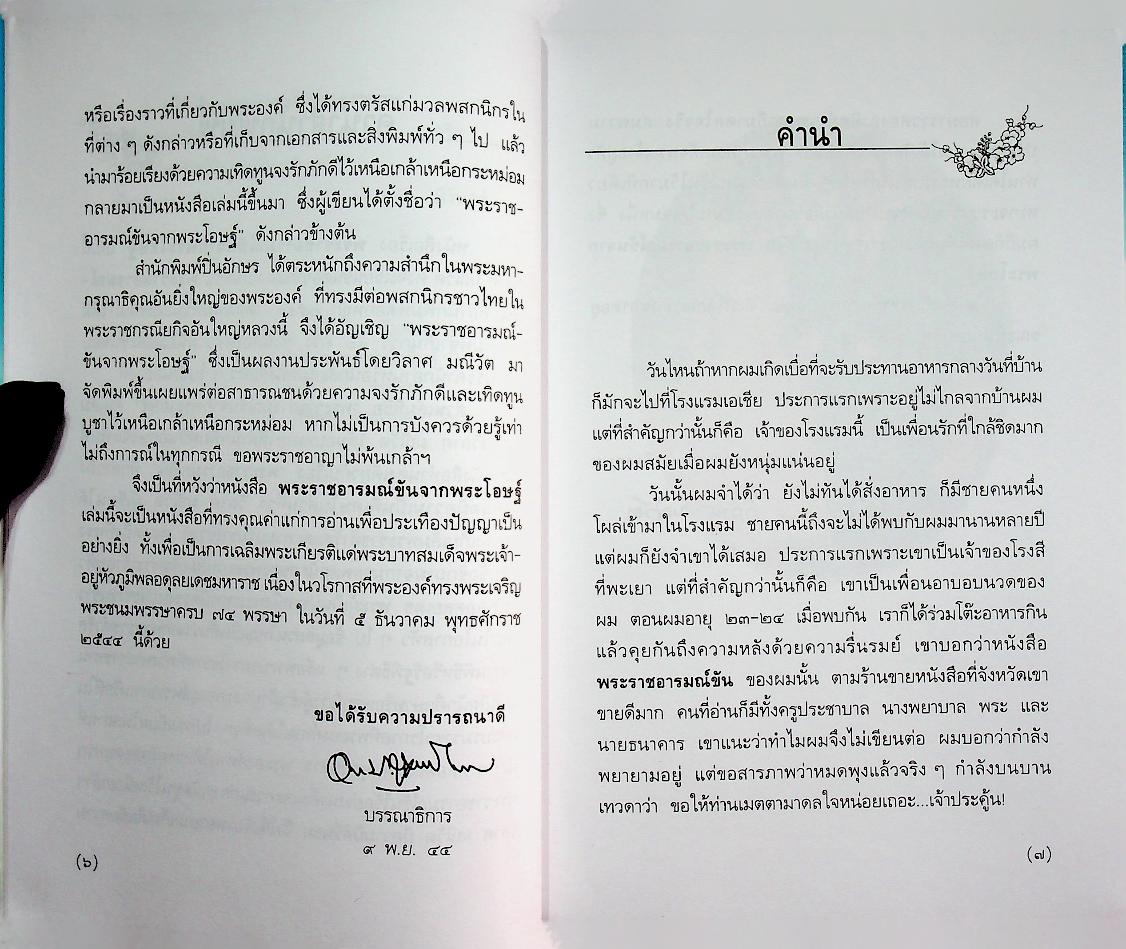 หรือเรื่องราวที่เกี่ยวกับพระองค์ ซึ่งได้ทรงตรัสแก่มวลพสกนิกรใน
ที่ต่าง ๆ ดังกล่าวหรือที่เก็บจากเอกสารและสิ่งพิมพ์ทั่ว ๆ ไป แล้ว
นำมาร้อยเรียงด้วยความเทิดทูนจงรักภักดีไว้เหนือเกล้าเหนือกระหม่อม
กลายมาเป็นหนังสือเล่มนี้ขึ้นมา ซึ่งผู้เขียนได้ตั้งชื่อว่า "พระราช-
อารมณ์ขันจากพระโอษฐ์" ดังกล่าวข้างต้น
สำนักพิมพ์ปิ่นอักษร ได้ตระหนักถึงความสำนึกในพระมหา-
กรุณาธิคุณอันยิ่งใหญ่ของพระองค์ ที่ทรงมีต่อพสกนิกรชาวไทยใน
พระราชกรณียกิจอันใหญ่หลวงนี้ จึงได้อัญเชิญ "พระราชอารมณ์-
ขันจากพระโอษฐ์" ซึ่งเป็นผลงานประพันธ์โดยวิลาศ มณีวัต มา
จัดพิมพ์ขึ้นเผยแพร่ต่อสาธารณชนด้วยความจงรักภักดีและเทิดทูน
บูชาไว้เหนือเกล้าเหนือกระหม่อม หากไม่เป็นการบังควรด้วยรู้เท่า
ไม่ถึงการณ์ในทุกกรณี ขอพระราชอาญาไม่พ้นเกล้าฯ
จึงเป็นที่หวังว่าหนังสือ พระราชอารมณ์ขันจากพระโอษฐ์
เล่มนี้จะเป็นหนังสือที่ทรงคุณค่าแก่การอ่านเพื่อประเทืองปัญญาเป็น
อย่างยิ่ง ทั้งเพื่อเป็นการเฉลิมพระเกียรติแด่พระบาทสมเด็จพระเจ้า-
อยู่หัวภูมิพลอดุลยเดชมหาราช เนื่องในวโรกาสที่พระองค์ทรงพระเจริญ
พระชนมพรรษาครบ ๗๔ พรรษา ในวันที่ ๕ ธันวาคม พุทธศักราช
๒๕๔๔ นี้ด้วย
ขอได้รับความปรารถนาดี
บรรณาธิการ
๙ พ.ย. ๔๔
(๖)
คำนำ
วันไหนถ้าหากผมเกิดเบื่อที่จะรับประทานอาหารกลางวันที่บ้าน
ก็มักจะไปที่โรงแรมเอเซีย ประการแรกเพราะอยู่ไม่ไกลจากบ้านผม
แต่ที่สำคัญกว่านั้นก็คือ เจ้าของโรงแรมนี้ เป็นเพื่อนรักที่ใกล้ชิดมาก
ของผมสมัยเมื่อผมยังหนุ่มแน่นอยู่
วันนั้นผมจำได้ว่า ยังไม่ทันได้สั่งอาหาร ก็มีชายคนหนึ่ง
โผล่เข้ามาในโรงแรม ชายคนนี้ถึงจะไม่ได้พบกับผมมานานหลายปี
แต่ผมก็ยังจำเขาได้เสมอ ประการแรกเพราะเขาเป็นเจ้าของโรงสี
ที่พะเยา แต่ที่สำคัญกว่านั้นก็คือ เขาเป็นเพื่อนอาบอบนวดของ
ผม ตอนผมอายุ ๒๓-๒๔ เมื่อพบกัน เราก็ได้ร่วมโต๊ะอาหารกิน
แล้วคุยกันถึงความหลังด้วยความรื่นรมย์ เขาบอกว่าหนังสือ
พระราชอารมณ์ขัน ของผมนั้น ตามร้านขายหนังสือที่จังหวัดเขา
ขายดีมาก คนที่อ่านก็มีทั้งครูประชาบาล นางพยาบาล พระ และ
นายธนาคาร เขาแนะว่าทำไมผมจึงไม่เขียนต่อ ผมบอกว่ากำลัง
พยายามอยู่ แต่ขอสารภาพว่าหมดพุงแล้วจริง ๆ กำลังบนบาน
เทวดาว่า ขอให้ท่านเมตตามาดลใจหน่อยเถอะ...เจ้าประคู้น!
(๗)